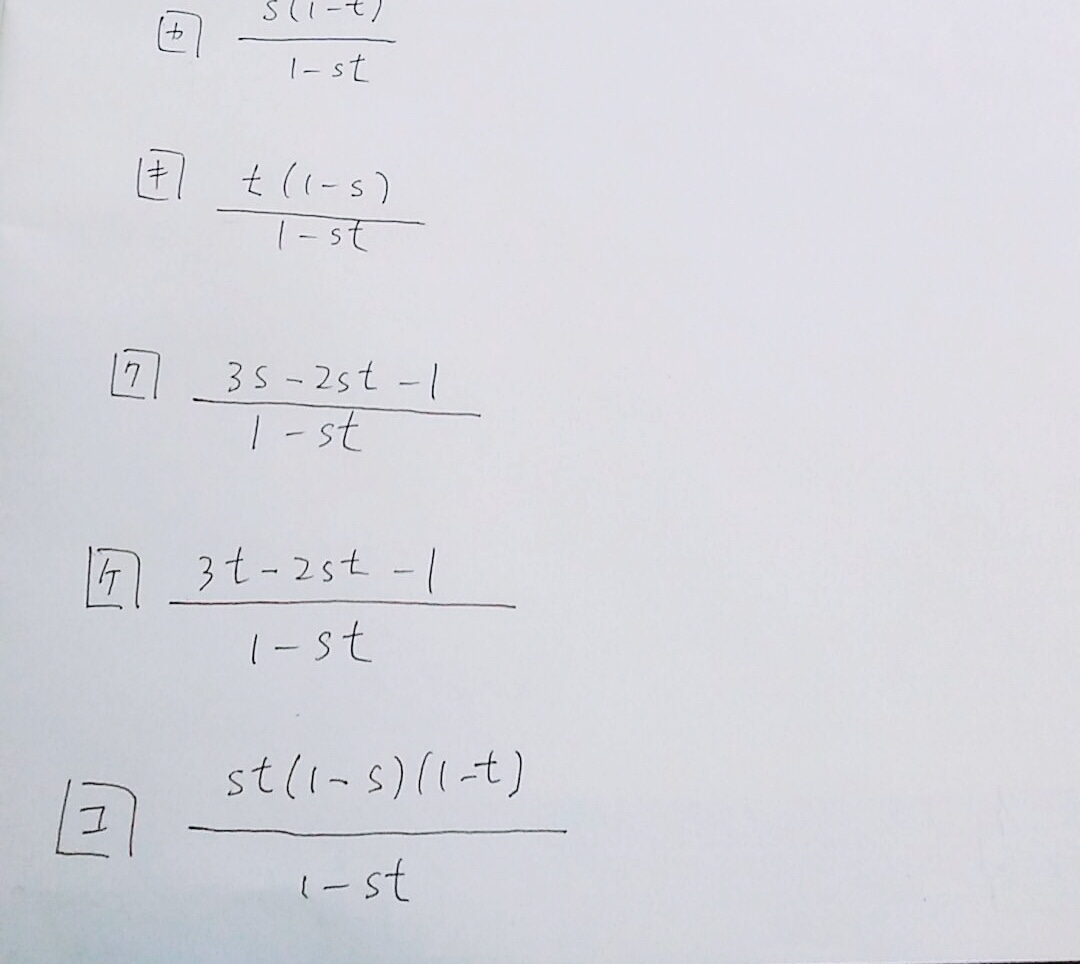 カ s(1-t)
1-st
キ t(1-s)
1-st
ク 3s-2st-1
1-st
ケ 3t-2st-1
1-st
コ st(1-s)(1-t)
1-st